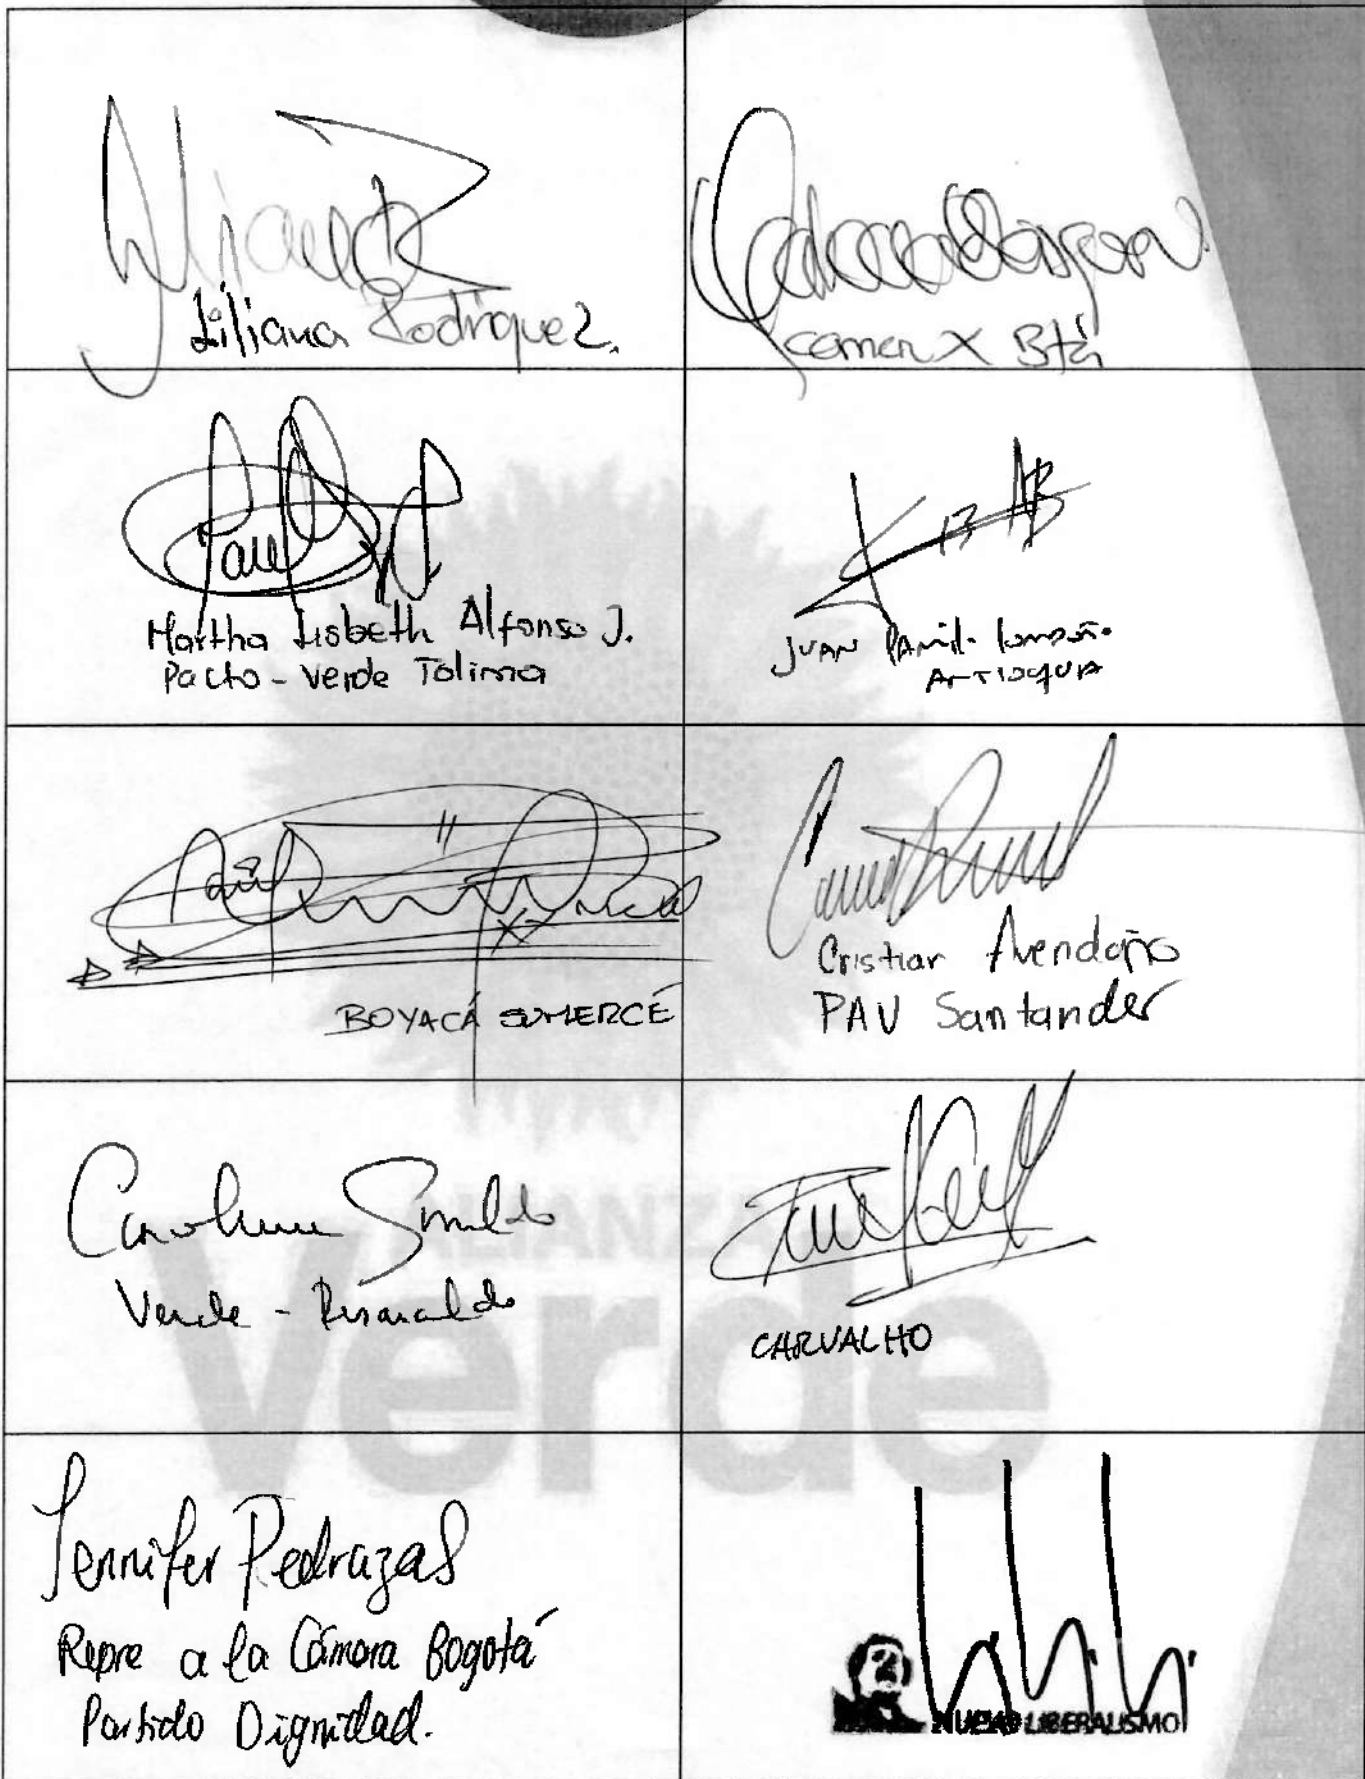 Liliana Rodriguez.
Camara X Bta
Martha Lisbeth Alfonso J.
Pacto - Verde Tolima
JUAN
ANTIOQUIA
BOYACÁ SUMERCÉ
Cristian Avendaño
PAV Santander
Carolina Giraldo
Verde - Risaralda
CARVALHO
ALIANZA
Verde
Jennifer Pedraza S
Repre a la Cámara Bogotá
Partido Dignidad.
NUEVO LIBERALISMO